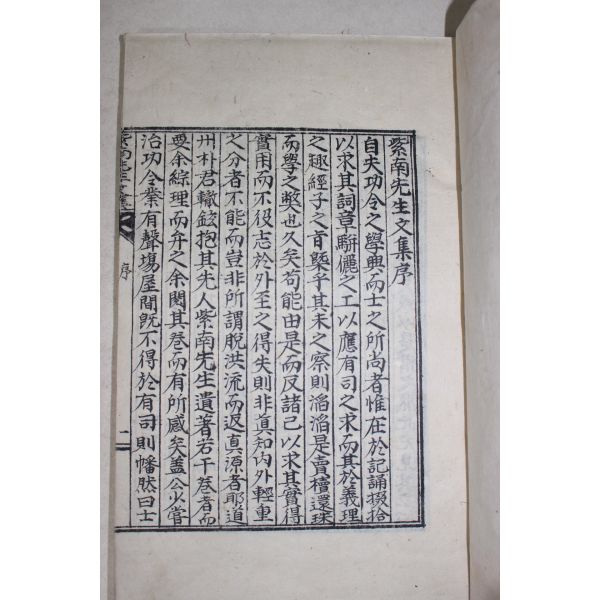 紫南先生文集序
自夫功令之學興而士之所尚者惟在於記誦掇拾
以求其詞章騈儷之工以應有司之求而其於義理
之趣經子之旨槩乎其未之察則滔滔是賣櫝還珠
而學之獘也久矣苟能由是而反諸己以求其實得
實用而不役志於外至之得失則非眞知內外輕重
之分者不能而豈非所謂脫洪流而返眞源者耶道
州朴君轍鉉抱其先人紫南先生遺著若干卷者而
要余綜理而弁之余閱其卷而有所感矣盖公少嘗
治功令業有聲塲屋間旣不得於有司則幡然曰士
序